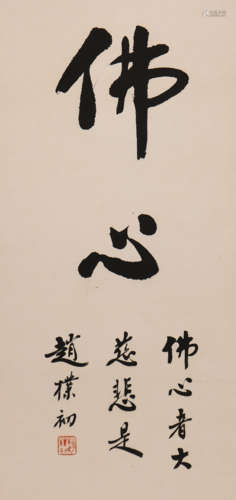 佛
心
佛心者大
慈悲是
趙樸初